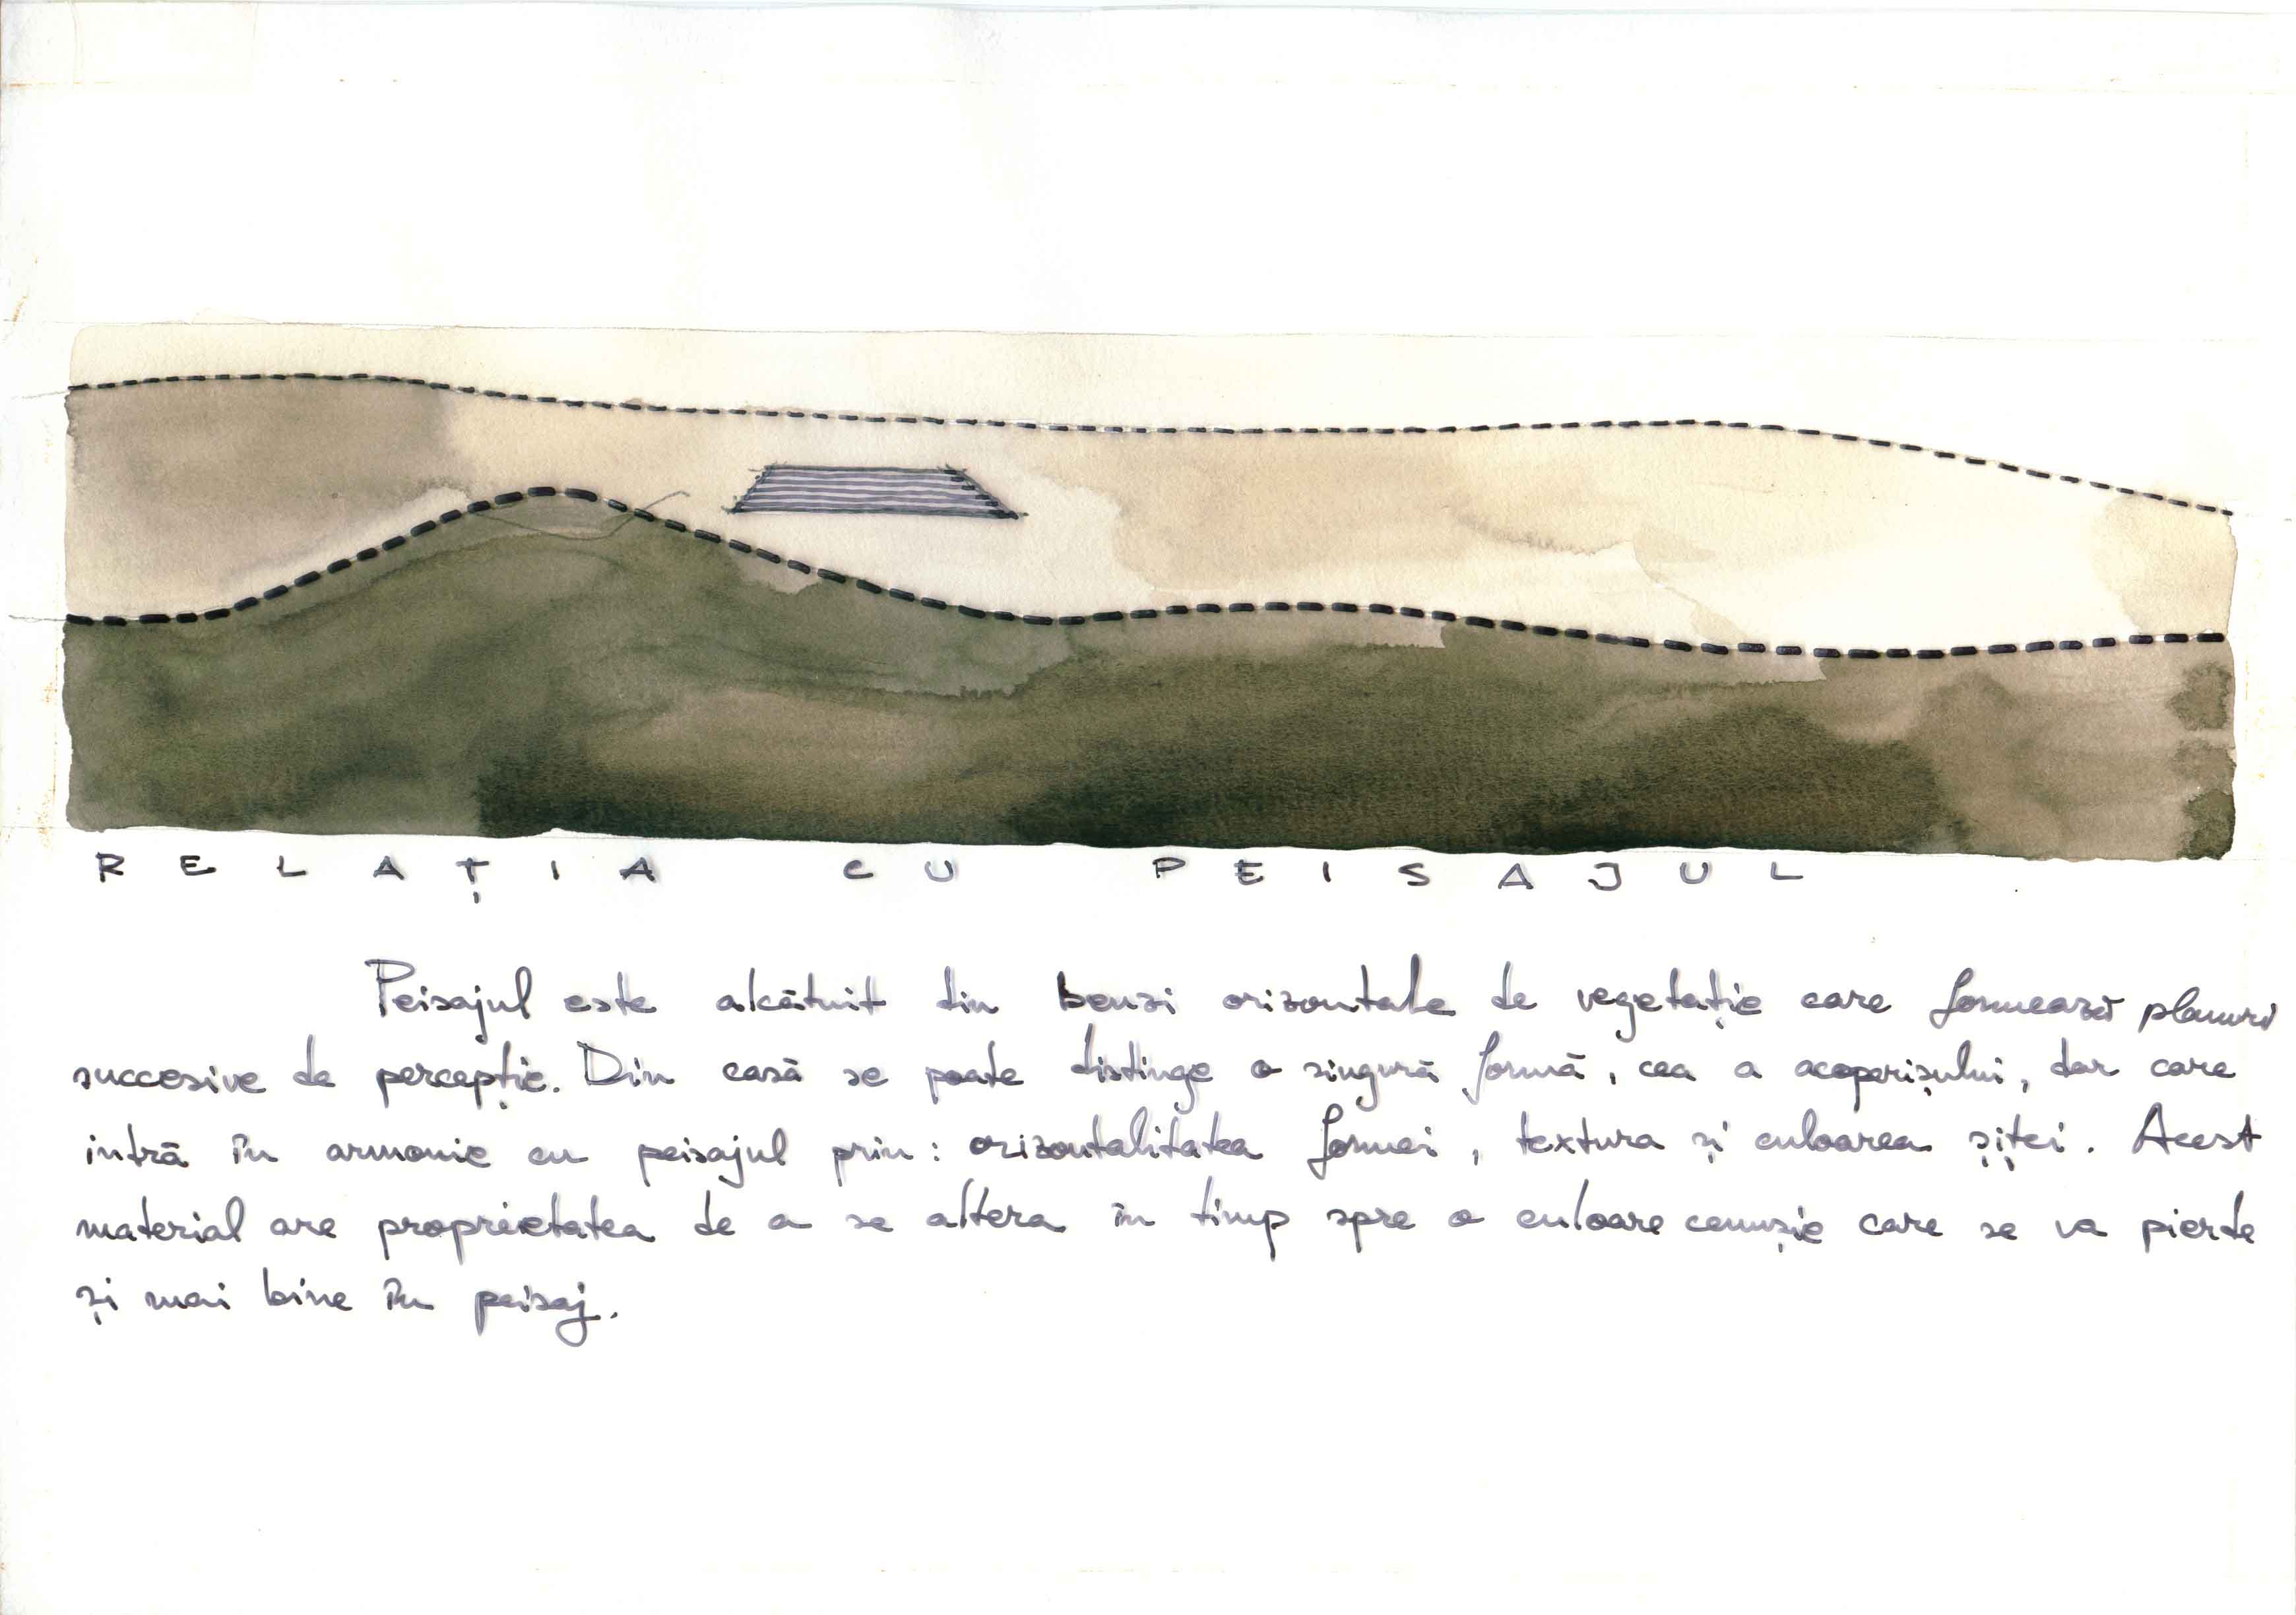 RELAȚIA CU PEISAJUL
Peisajul este alcătuit din benzi orizontale de vegetație care formează planuri
succesive de percepție. Din casă se poate distinge o singură formă, cea a acoperișului, dar care
intră în armonie cu peisajul prin: orizontalitatea formei, textura și culoarea șiței. Acest
material are proprietatea de a se altera în timp spre o culoare cenușie care se va pierde
și mai bine în peisaj.